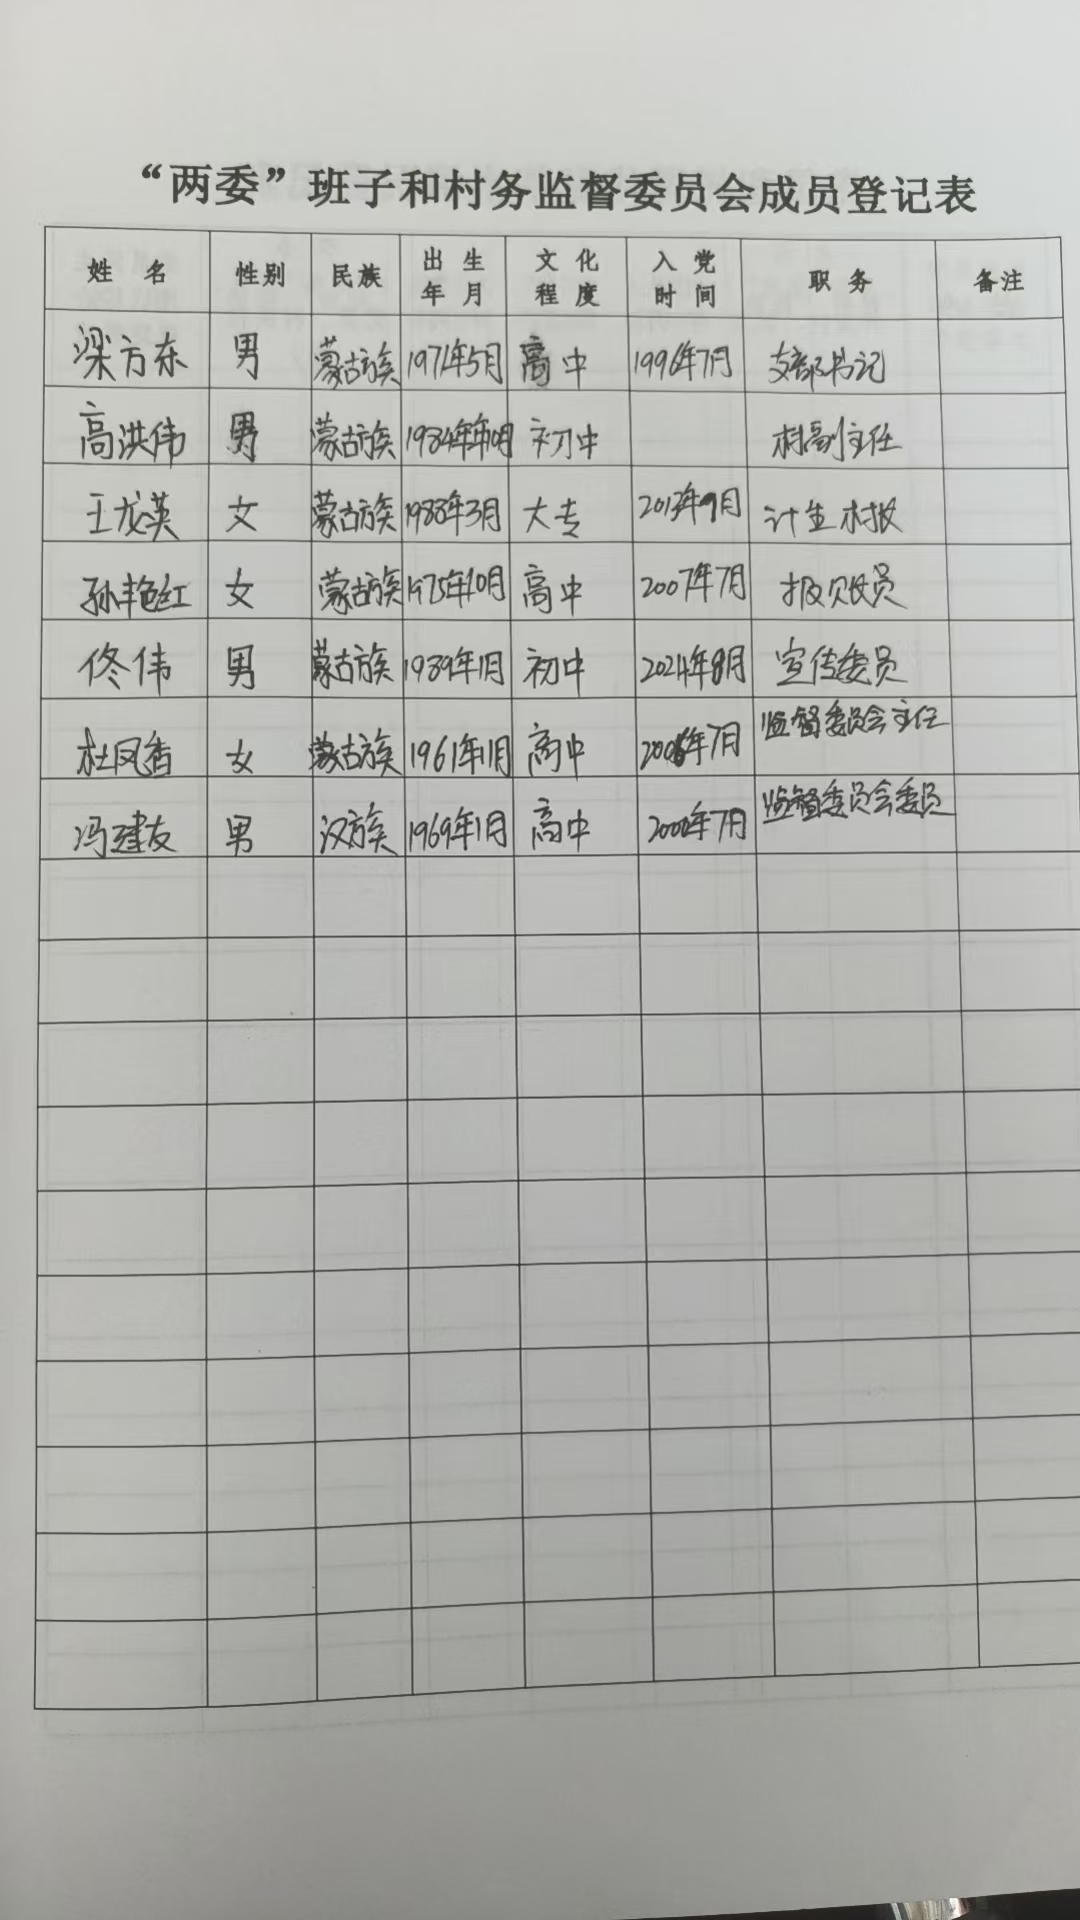 “两委”班子和村务监督委员会成员登记表
姓 名 性别 民族 出 生 年 月 文 化 程 度 入 党 时 间 职 务 备注
梁方东 男 蒙古族 1971年5月 高中 1996年7月 支部书记
高洪伟 男 蒙古族 初中 村副主任
王龙英 女 蒙古族 1988年3月 大专 计生村报
孙艳红 女 蒙古族 1975年10月 高中 2007年7月 报账员
佟伟 男 蒙古族 1989年1月 初中 2024年8月 宣传委员
杜凤香 女 蒙古族 1961年11月 高中 监督委员会主任
冯建友 男 汉族 1969年1月 高中 2000年7月 监督委员会委员